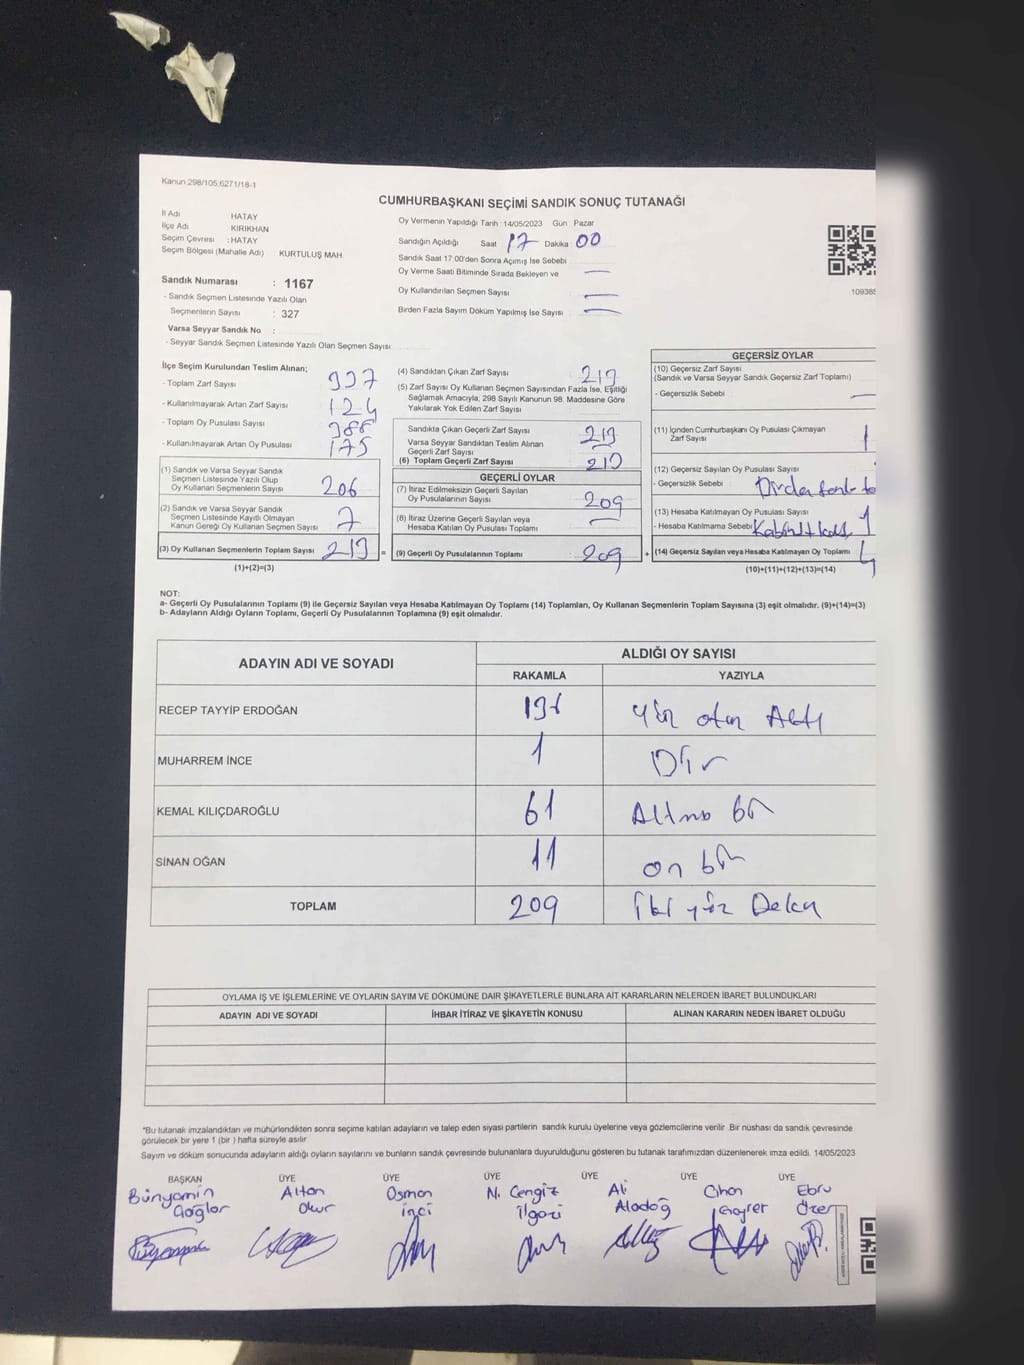 Kanun:298/105,6271/18-1
CUMHURBAŞKANI SEÇİMİ SANDIK SONUÇ TUTANAĞI
İl Adı HATAY
İlçe Adı KIRIKHAN
Seçim Çevresi : HATAY
Seçim Bölgesi (Mahalle Adı) KURTULUŞ MAH.
Sandık Numarası : 1167
- Sandık Seçmen Listesinde Yazılı Olan
Seçmenlerin Sayısı : 327
Varsa Seyyar Sandık No :
- Seyyar Sandık Seçmen Listesinde Yazılı Olan Seçmen Sayısı:
Oy Vermenin Yapıldığı Tarih : 14/05/2023 Gün Pazar
Sandığın Açıldığı Saat 17 Dakika 00
Sandık Saat 17:00'den Sonra Açımış İse Sebebi
Oy Verme Saati Bitiminde Sırada Bekleyen ve —
Oy Kullandırılan Seçmen Sayısı —
Birden Fazla Sayım Döküm Yapılmış İse Sayısı —
109385
İlçe Seçim Kurulundan Teslim Alınan;
- Toplam Zarf Sayısı 337
- Kullanılmayarak Artan Zarf Sayısı 124
- Toplam Oy Pusulası Sayısı 388
- Kullanılmayarak Artan Oy Pusulası 175
(1) Sandık ve Varsa Seyyar Sandık
Seçmen Listesinde Yazılı Olup
Oy Kullanan Seçmenlerin Sayısı 206
(2) Sandık ve Varsa Seyyar Sandık
Seçmen Listesinde Kayıtlı Olmayan
Kanun Gereği Oy Kullanan Seçmen Sayısı 7
(3) Oy Kullanan Seçmenlerin Toplam Sayısı 213 =
(1)+(2)=(3)
(4) Sandıktan Çıkan Zarf Sayısı 213
(5) Zarf Sayısı Oy Kullanan Seçmen Sayısından Fazla İse, Eşitliği
Sağlamak Amacıyla; 298 Sayılı Kanunun 98. Maddesine Göre
Yakılarak Yok Edilen Zarf Sayısı
Sandıkta Çıkan Geçerli Zarf Sayısı 213
Varsa Seyyar Sandıktan Teslim Alınan
Geçerli Zarf Sayısı
(6) Toplam Geçerli Zarf Sayısı 213
GEÇERLİ OYLAR
(7) İtiraz Edilmeksizin Geçerli Sayılan
Oy Pusulalarının Sayısı 209
(8) İtiraz Üzerine Geçerli Sayılan veya
Hesaba Katılan Oy Pusulası Toplamı —
(9) Geçerli Oy Pusulalarının Toplamı : 209 +
GEÇERSİZ OYLAR
(10) Geçersiz Zarf Sayısı
(Sandık ve Varsa Seyyar Sandık Geçersiz Zarf Toplamı)
- Geçersizlik Sebebi —
(11) İçinden Cumhurbaşkanı Oy Pusulası Çıkmayan
Zarf Sayısı 1
(12) Geçersiz Sayılan Oy Pusulası Sayısı
- Geçersizlik Sebebi
(13) Hesaba Katılmayan Oy Pusulası Sayısı 1
- Hesaba Katılmama Sebebi
(14) Geçersiz Sayılan veya Hesaba Katılmayan Oy Toplamı 4
(10)+(11)+(12)+(13)=(14)
NOT:
a- Geçerli Oy Pusulalarının Toplamı (9) ile Geçersiz Sayılan veya Hesaba Katılmayan Oy Toplamı (14) Toplamları, Oy Kullanan Seçmenlerin Toplam Sayısına (3) eşit olmalıdır. (9)+(14)=(3)
b- Adayların Aldığı Oyların Toplamı, Geçerli Oy Pusulalarının Toplamına (9) eşit olmalıdır.
ADAYIN ADI VE SOYADI ALDIĞI OY SAYISI
RAKAMLA YAZIYLA
RECEP TAYYİP ERDOĞAN 136 Yüz otuz Altı
MUHARREM İNCE 1 Bir
KEMAL KILIÇDAROĞLU 61 Altmış bir
SİNAN OĞAN 11 on bir
TOPLAM 209 iki yüz Dokuz
OYLAMA İŞ VE İŞLEMLERİNE VE OYLARIN SAYIM VE DÖKÜMÜNE DAİR ŞİKAYETLERLE BUNLARA AİT KARARLARIN NELERDEN İBARET BULUNDUKLARI
ADAYIN ADI VE SOYADI İHBAR İTİRAZ VE ŞİKAYETİN KONUSU ALINAN KARARIN NEDEN İBARET OLDUĞU
*Bu tutanak imzalandıktan ve mühürlendikten sonra seçime katılan adayların ve talep eden siyasi partilerin sandık kurulu üyelerine veya gözlemcilerine verilir. Bir nüshası da sandık çevresinde
görülecek bir yere 1 (bir ) hafta süreyle asılır
Sayım ve döküm sonucunda adayların aldığı oyların sayılarını ve bunların sandık çevresinde bulunanlara duyurulduğunu gösteren bu tutanak tarafımızdan düzenlenerek imza edildi. 14/05/2023
BAŞKAN ÜYE ÜYE ÜYE ÜYE ÜYE ÜYE
Bünyamin Altan Osman N. Cengiz Ali Cihan Ebru
Çağlar Okur inci ilgazi Aladağ Gayret Özer